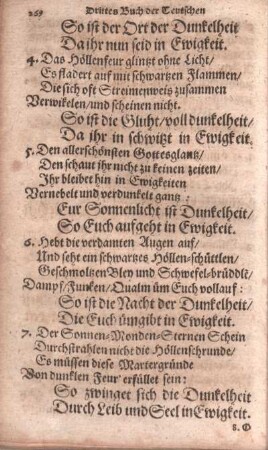 269 Dritten Buch der Teutschen
So ist der Ort der Dunkelheit
Da ihr nun seid in Ewigkeit.
4. Das Höllenfeur glintzt ohne Licht/
Es fladert auf mit schwartzen Flammen/
Die sich oft Streimenweis zusammen
Verwikelen/und scheinen nicht.
So ist die Gluht/voll dunkelheit/
Da ihr in schwitzt in Ewigkeit.
5. Den allerschönsten Gottesglantz/
Den schaut ihr nicht zu keinen zeiten/
Ihr bleibet hin in Ewigkeiten
Vernebelt und verdunkelt gantz:
Eur Sonnenlicht ist Dunkelheit/
So Euch aufgeht in Ewigkeit.
6. Hebt die verdamten Augen auf/
Und seht ein schwartzes Höllen-schüttlen/
Geschmoltzen Bley und Schwefel-brüddlẽ/
Dampf/Funken/Qualm üm Euch vollauf:
So ist die Nacht der Dunkelheit/
Die Euch ümgibt in Ewigkeit.
7. Der Sonnen-Monden-Sternen Schein
Durchstrahlen nicht die Höllenschrunde/
Es müssen diese Martergründe
Von dunklen Feur erfüllet sein:
So zwinget sich die Dunkelheit
Durch Leib und Seel in Ewigkeit.
8. O